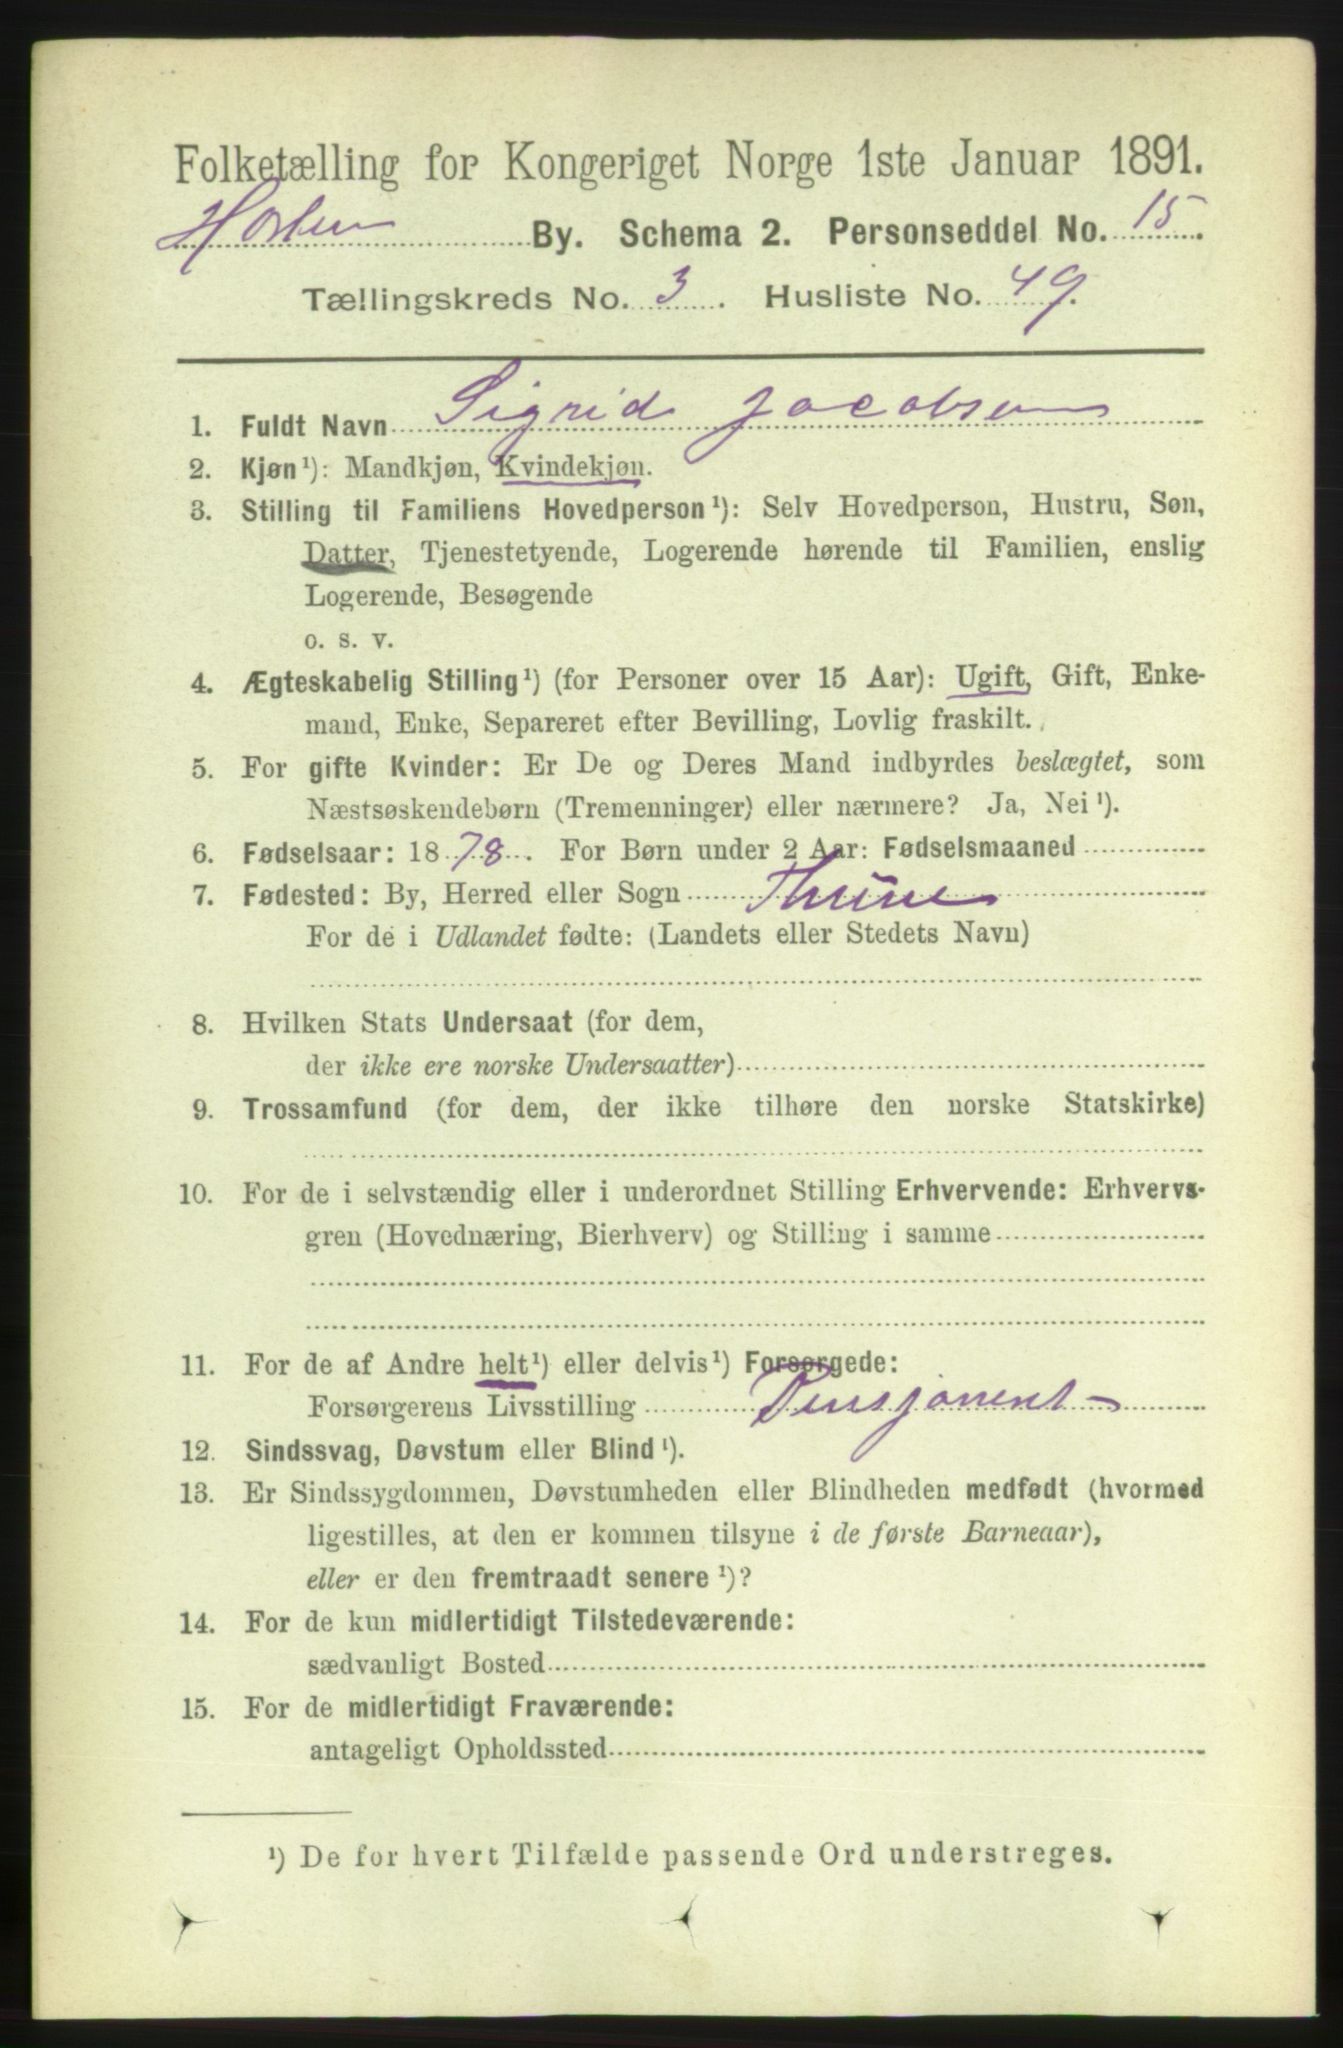 Folketælling for Kongeriget Norge 1ste Januar 1891.
Horten By. Schema 2. Personseddel No. 15.
Tællingskreds No. 3. Husliste No. 49.
1. Fuldt Navn Sigrid Jacobsen
2. Kjøn ¹): Mandkjøn, Kvindekjøn.
3. Stilling til Familiens Hovedperson ¹): Selv Hovedperson, Hustru, Søn,
Datter, Tjenestetyende, Logerende hørende til Familien, enslig
Logerende, Besøgende
o. s. v.
4. Ægteskabelig Stilling ¹) (for Personer over 15 Aar): Ugift, Gift, Enke-
mand, Enke, Separeret efter Bevilling, Lovlig fraskilt.
5. For gifte Kvinder: Er De og Deres Mand indbyrdes beslægtet, som
Næstsøskendebørn (Tremenninger) eller nærmere? Ja, Nei ¹).
6. Fødselsaar: 1878. For Børn under 2 Aar: Fødselsmaaned
7. Fødested: By, Herred eller Sogn
For de i Udlandet fødte: (Landets eller Stedets Navn)
8. Hvilken Stats Undersaat (for dem,
der ikke ere norske Undersaatter)
9. Trossamfund (for dem, der ikke tilhøre den norske Statskirke)
10. For de i selvstændig eller i underordnet Stilling Erhvervende: Erhvervs-
gren (Hovednæring, Bierhverv) og Stilling i samme
11. For de af Andre helt ¹) eller delvis ¹) Forsørgede:
Forsørgerens Livsstilling Pensjonent
12. Sindssvag, Døvstum eller Blind ¹).
13. Er Sindssygdommen, Døvstumheden eller Blindheden medfødt (hvormed
ligestilles, at den er kommen tilsyne i de første Barneaar),
eller er den fremtraadt senere ¹)?
14. For de kun midlertidigt Tilstedeværende:
sædvanligt Bosted
15. For de midlertidigt Fraværende:
antageligt Opholdssted
¹) De for hvert Tilfælde passende Ord understreges.